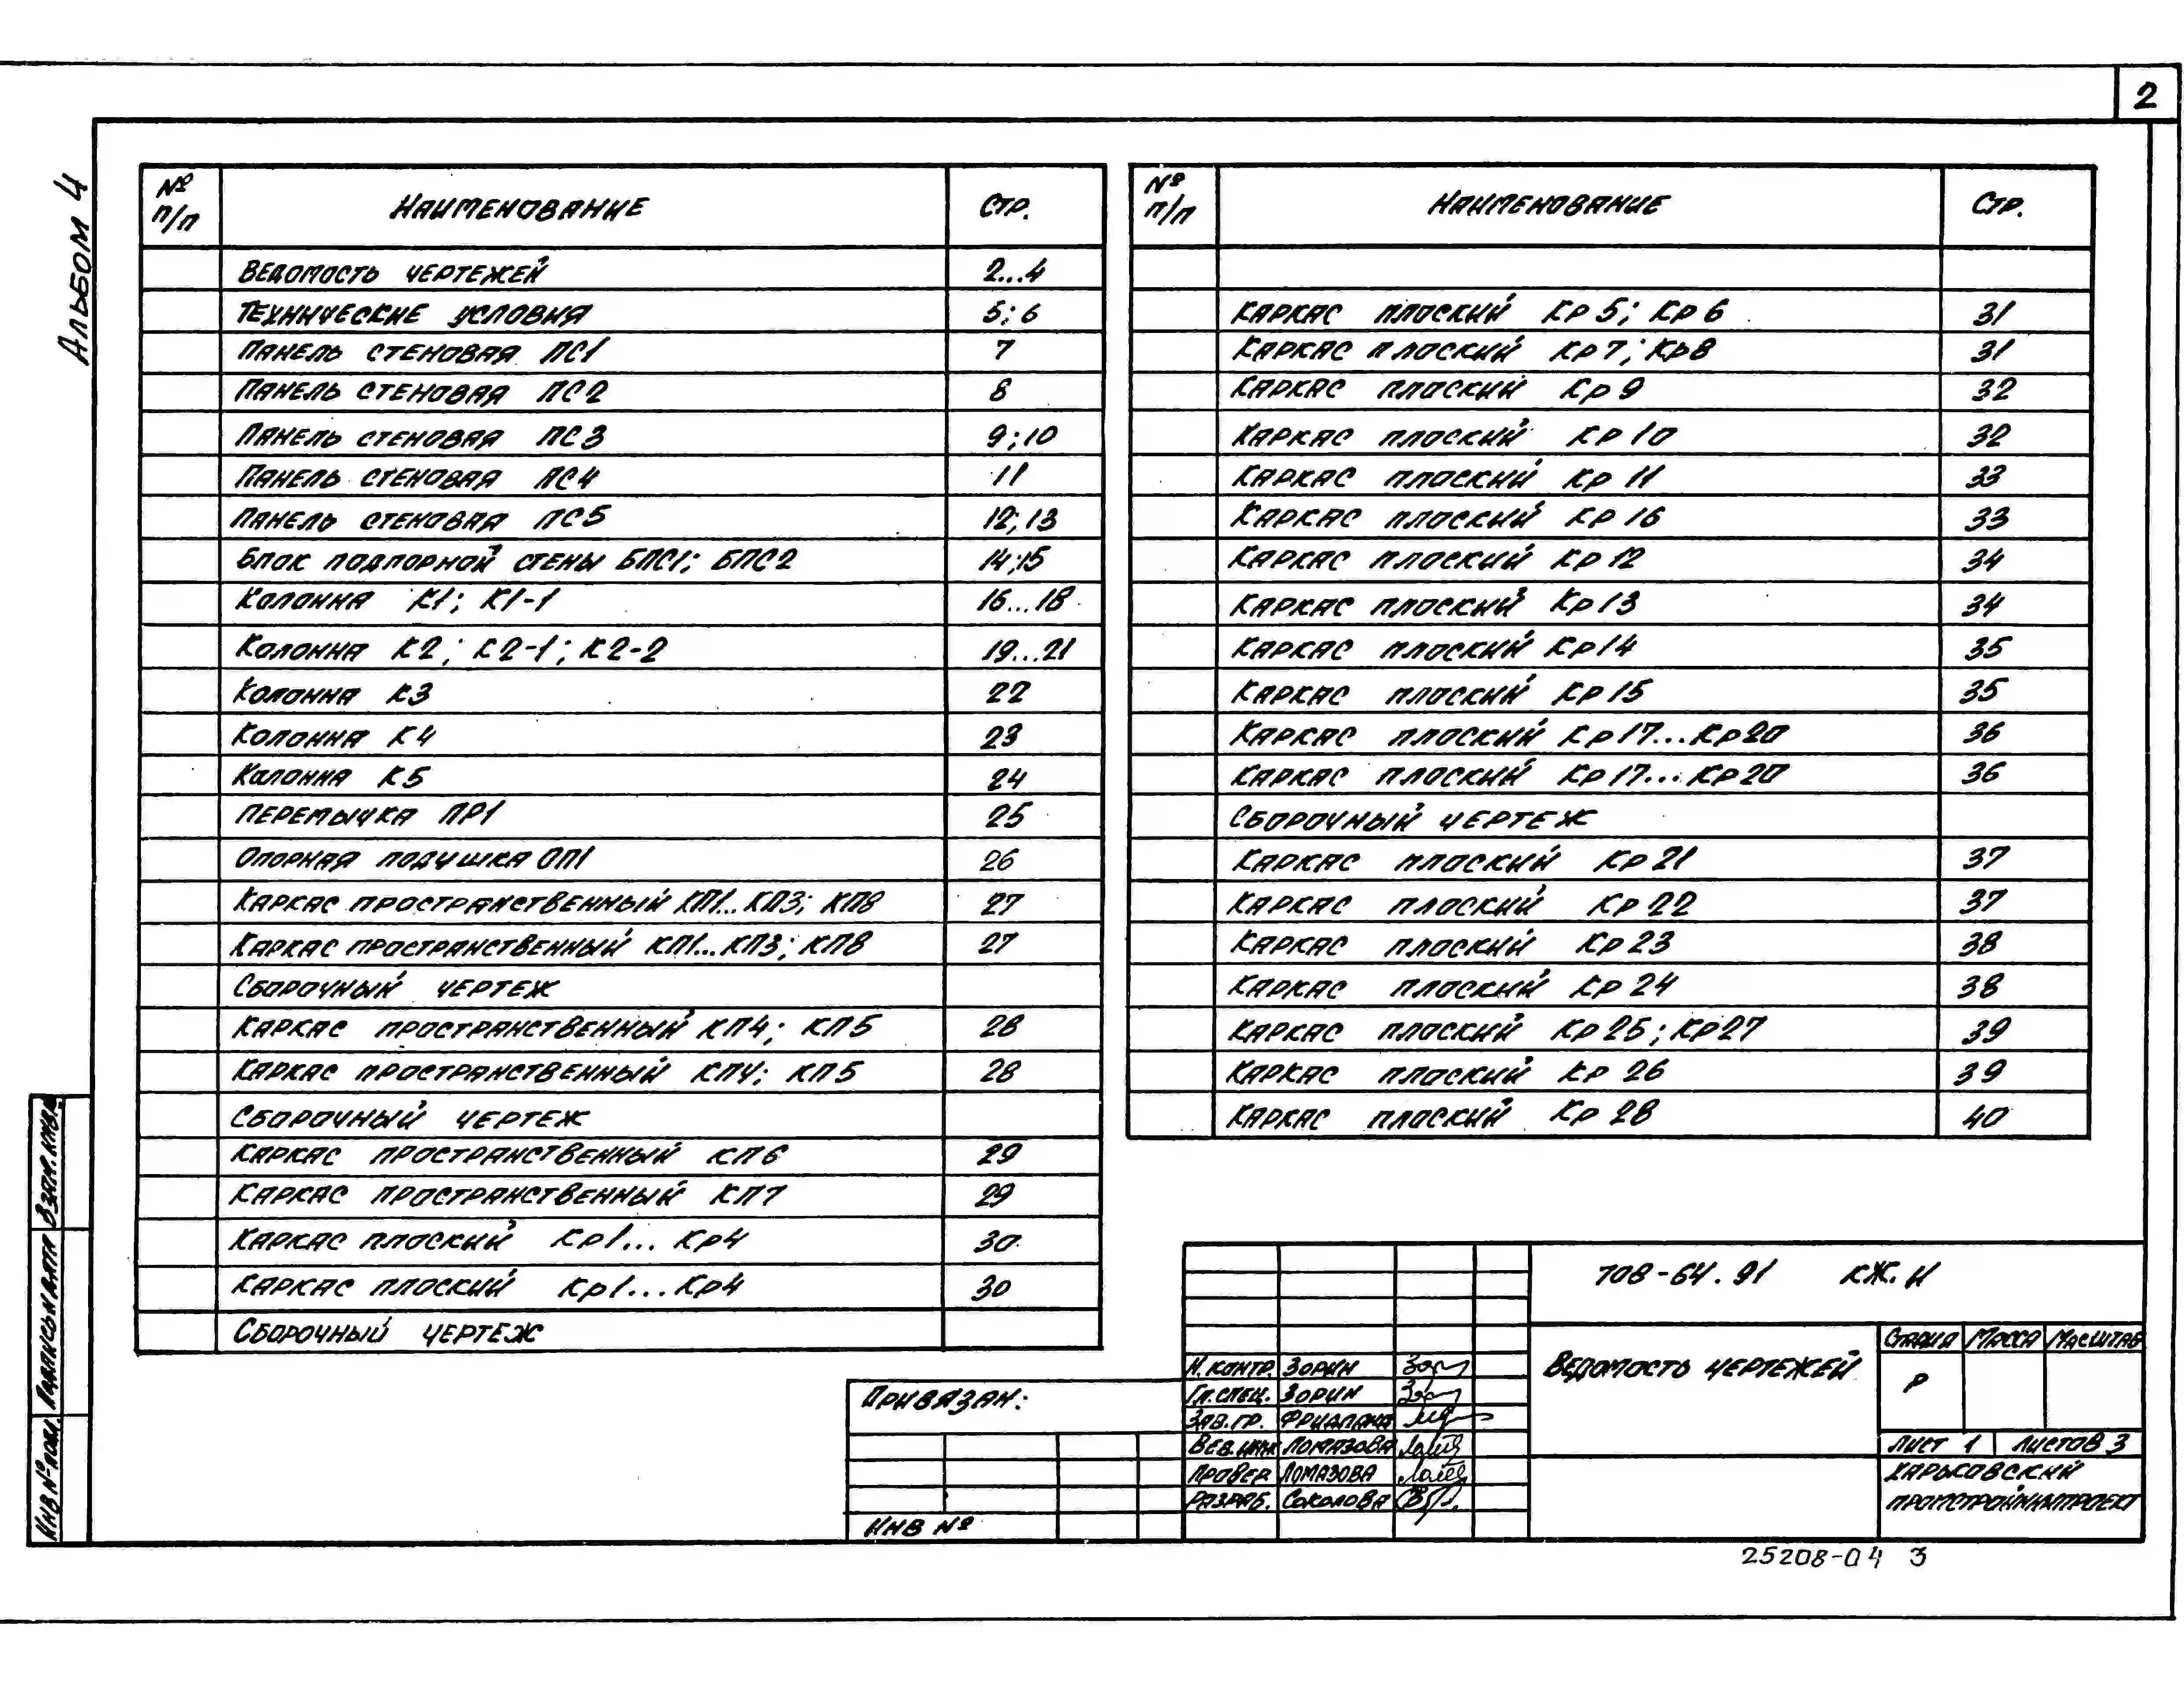 2
Альбом 4
№ п/п Наименование Стр.
Ведомость чертежей 2...4
Технические условия 5; 6
Панель стеновая ПС1 7
Панель стеновая ПС2 8
Панель стеновая ПС3 9; 10
Панель стеновая ПС4 11
Панель стеновая ПС5 12; 13
Блок подпорной стены БПС1; БПС2 14; 15
Колонна К1; К1-1 16...18
Колонна К2; К2-1; К2-2 19...21
Колонна К3 22
Колонна К4 23
Колонна К5 24
Перемычка ПР1 25
Опорная подушка ОП1 26
Каркас пространственный КП1...КП3; КП8 27
Каркас пространственный КП1...КП3; КП8 27
Сборочный чертеж
Каркас пространственный КП4; КП5 28
Каркас пространственный КП4; КП5 28
Сборочный чертеж
Каркас пространственный КП6 29
Каркас пространственный КП7 29
Каркас плоский Кр1...Кр4 30
Каркас плоский Кр1...Кр4 30
Сборочный чертеж
№ п/п Наименование Стр.
Каркас плоский Кр5; Кр6 31
Каркас плоский Кр7; Кр8 31
Каркас плоский Кр9 32
Каркас плоский Кр10 32
Каркас плоский Кр11 33
Каркас плоский Кр16 33
Каркас плоский Кр12 34
Каркас плоский Кр13 34
Каркас плоский Кр14 35
Каркас плоский Кр15 35
Каркас плоский Кр17...Кр20 36
Каркас плоский Кр17...Кр20 36
Сборочный чертеж
Каркас плоский Кр21 37
Каркас плоский Кр22 37
Каркас плоский Кр23 38
Каркас плоский Кр24 38
Каркас плоский Кр25; Кр27 39
Каркас плоский Кр26 39
Каркас плоский Кр28 40
Взам.инв.
Подпись и дата
Инв № подл.
Привязан:
Инв №
Н.контр. Зорин
Гл.спец. Зорин
Зав.гр. Фридлянд
Вед.инж Ломазова
Провер Ломазова
Разраб. Соколова
708-64.91 КЖ.И
Ведомость чертежей
Стадия Масса Масштаб
Р
Лист 1 Листов 3
Харьковский
Промстройниипроект
25208-04 3